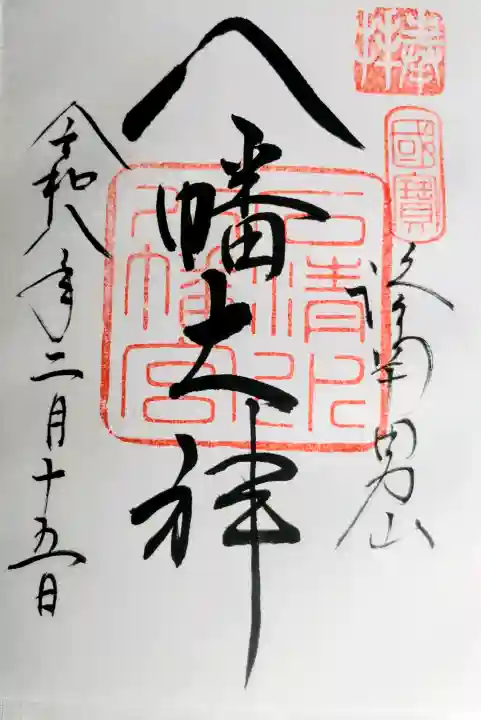 奉拝
國寶
洛南 男山
八幡大神
石清水
八幡宮
令和八年二月十五日